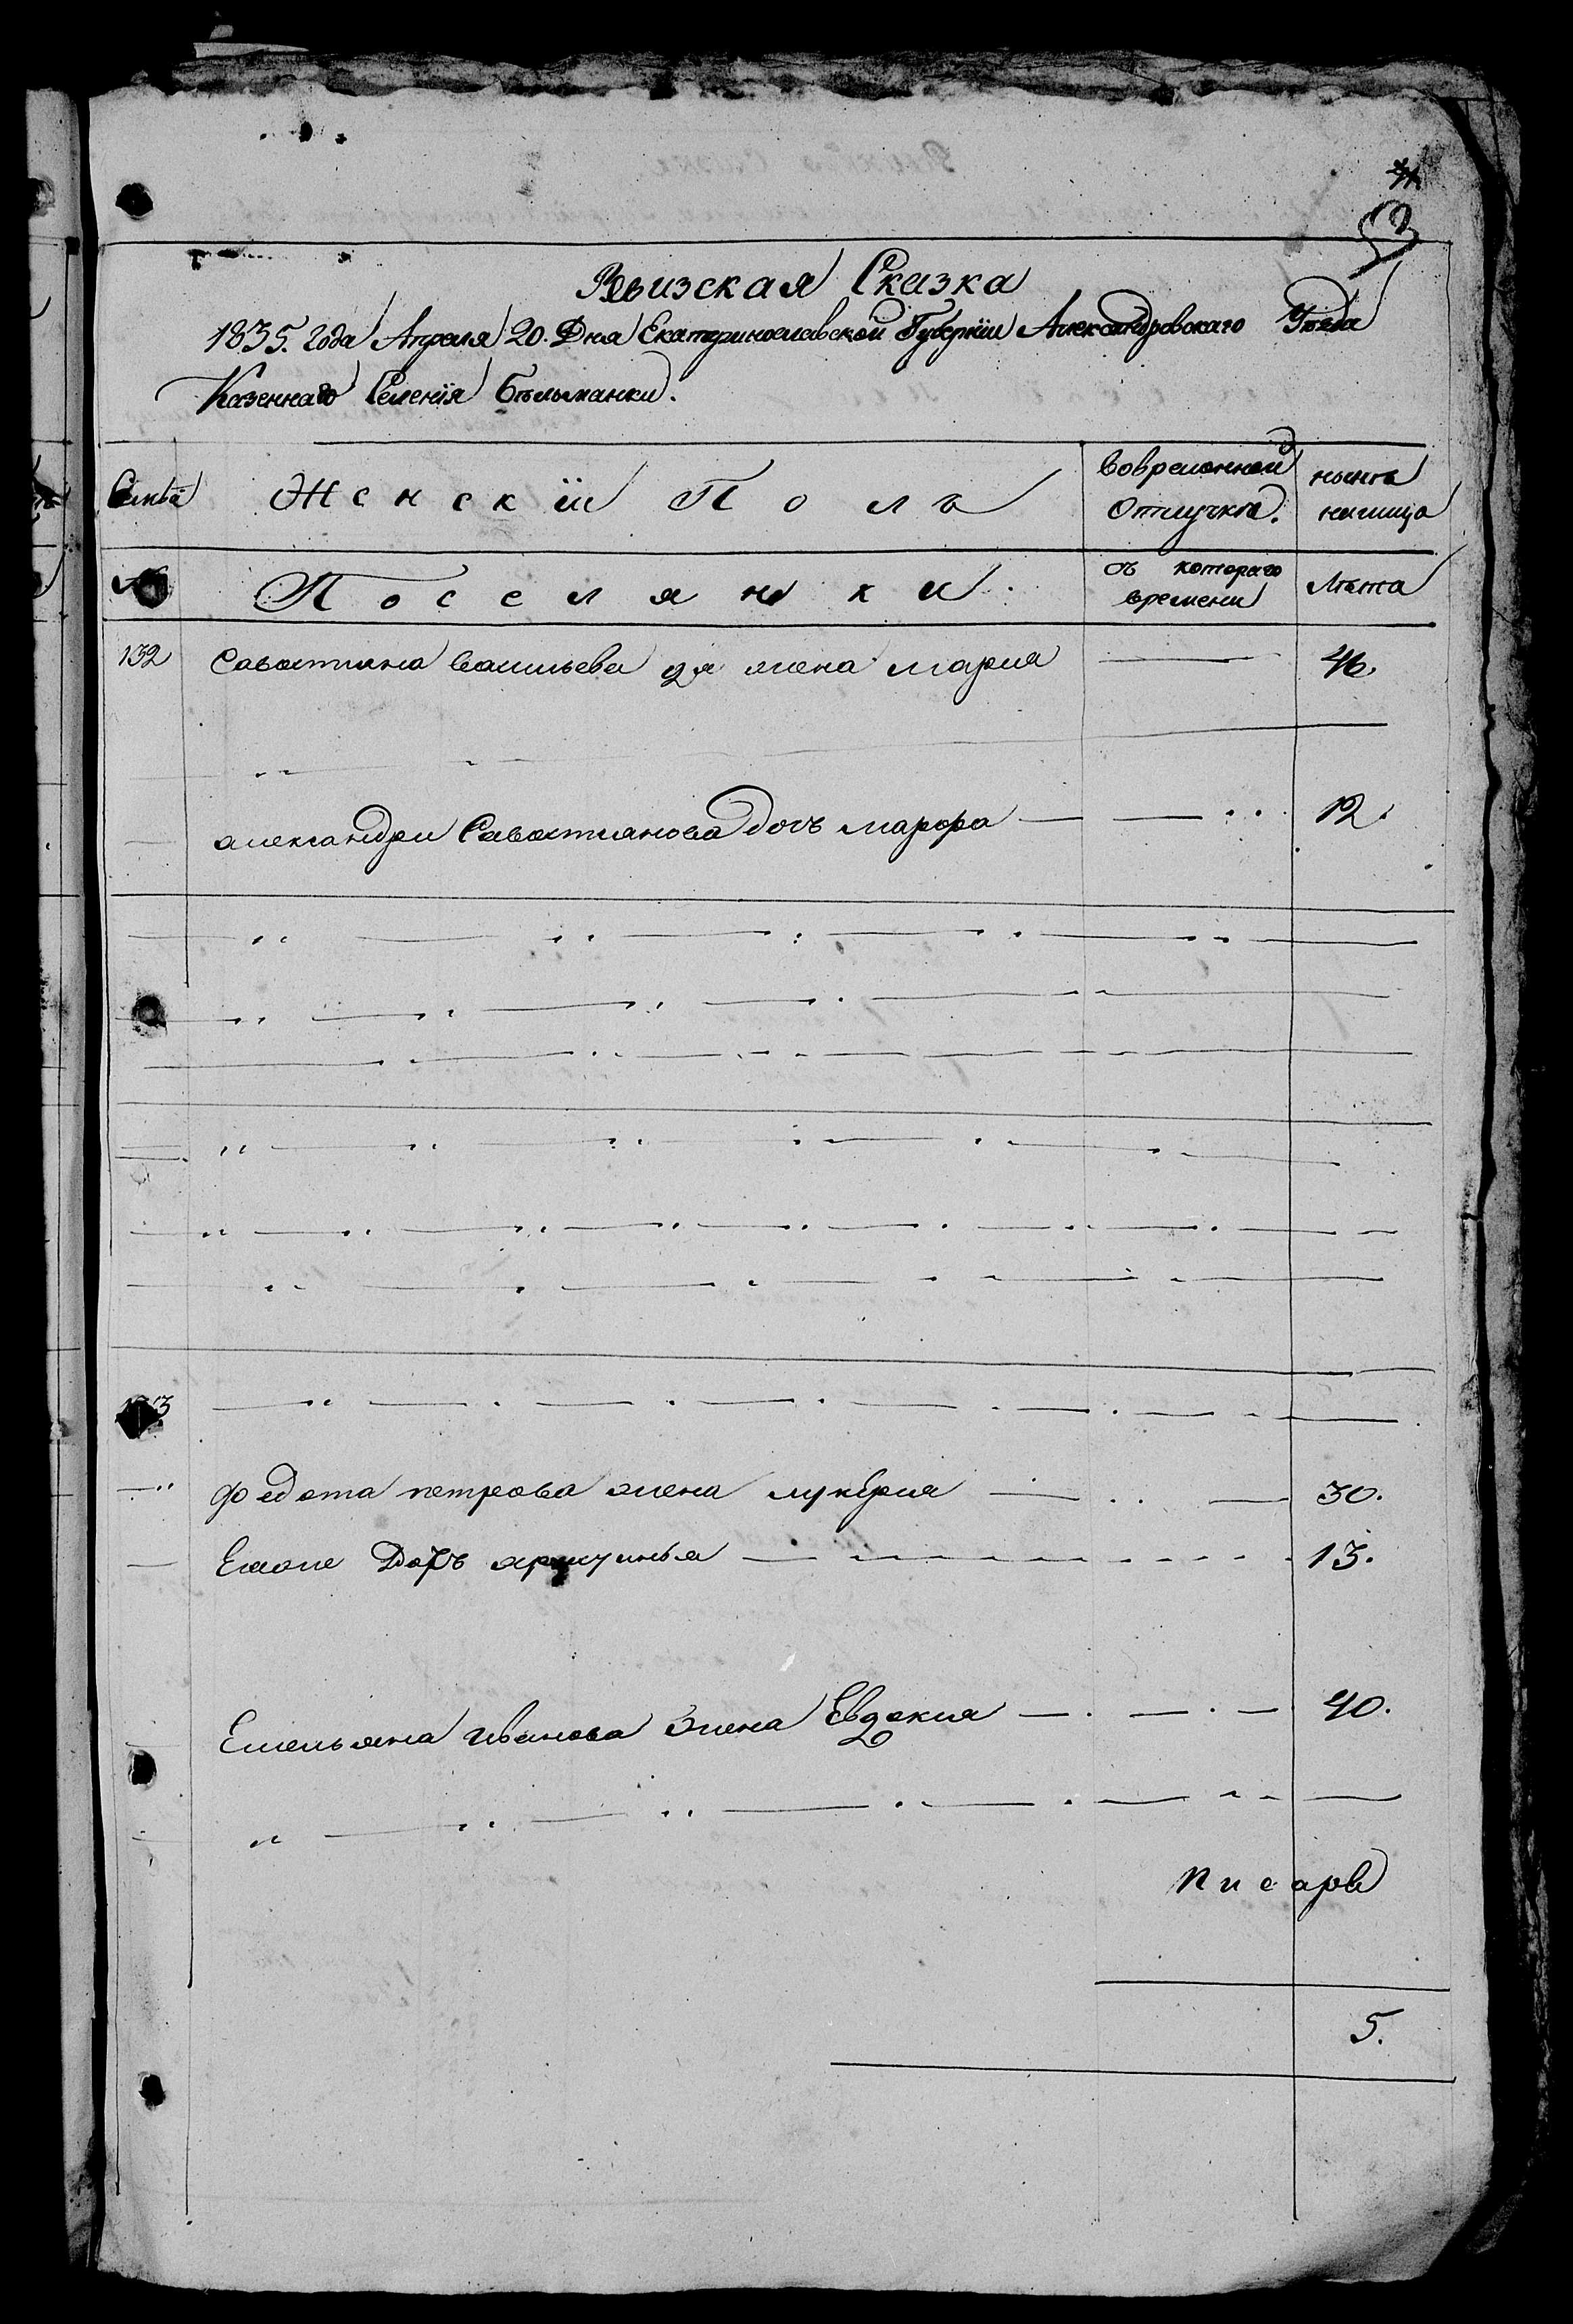 Ревизская Сказка
1835. года Апреля 20. Дня Екатеринославской Губернiи Александровскаго Уезда
Казеннаго Селенiя Бельманки.
Семьи
Женскiй Полъ
Вовременной
Отлучке.
ныне
налицо
№
Поселянки.
съ котораго
времени
Лета
132 Савастияна Васильева 2я жена Мария 46.
александра Савастиянова дочь марфа 12.
133
федота петрова жена лукерия 30.
Емопе Дочь 13.
Емельяна иванова Жена Евдокия 40.
Писарь
5.